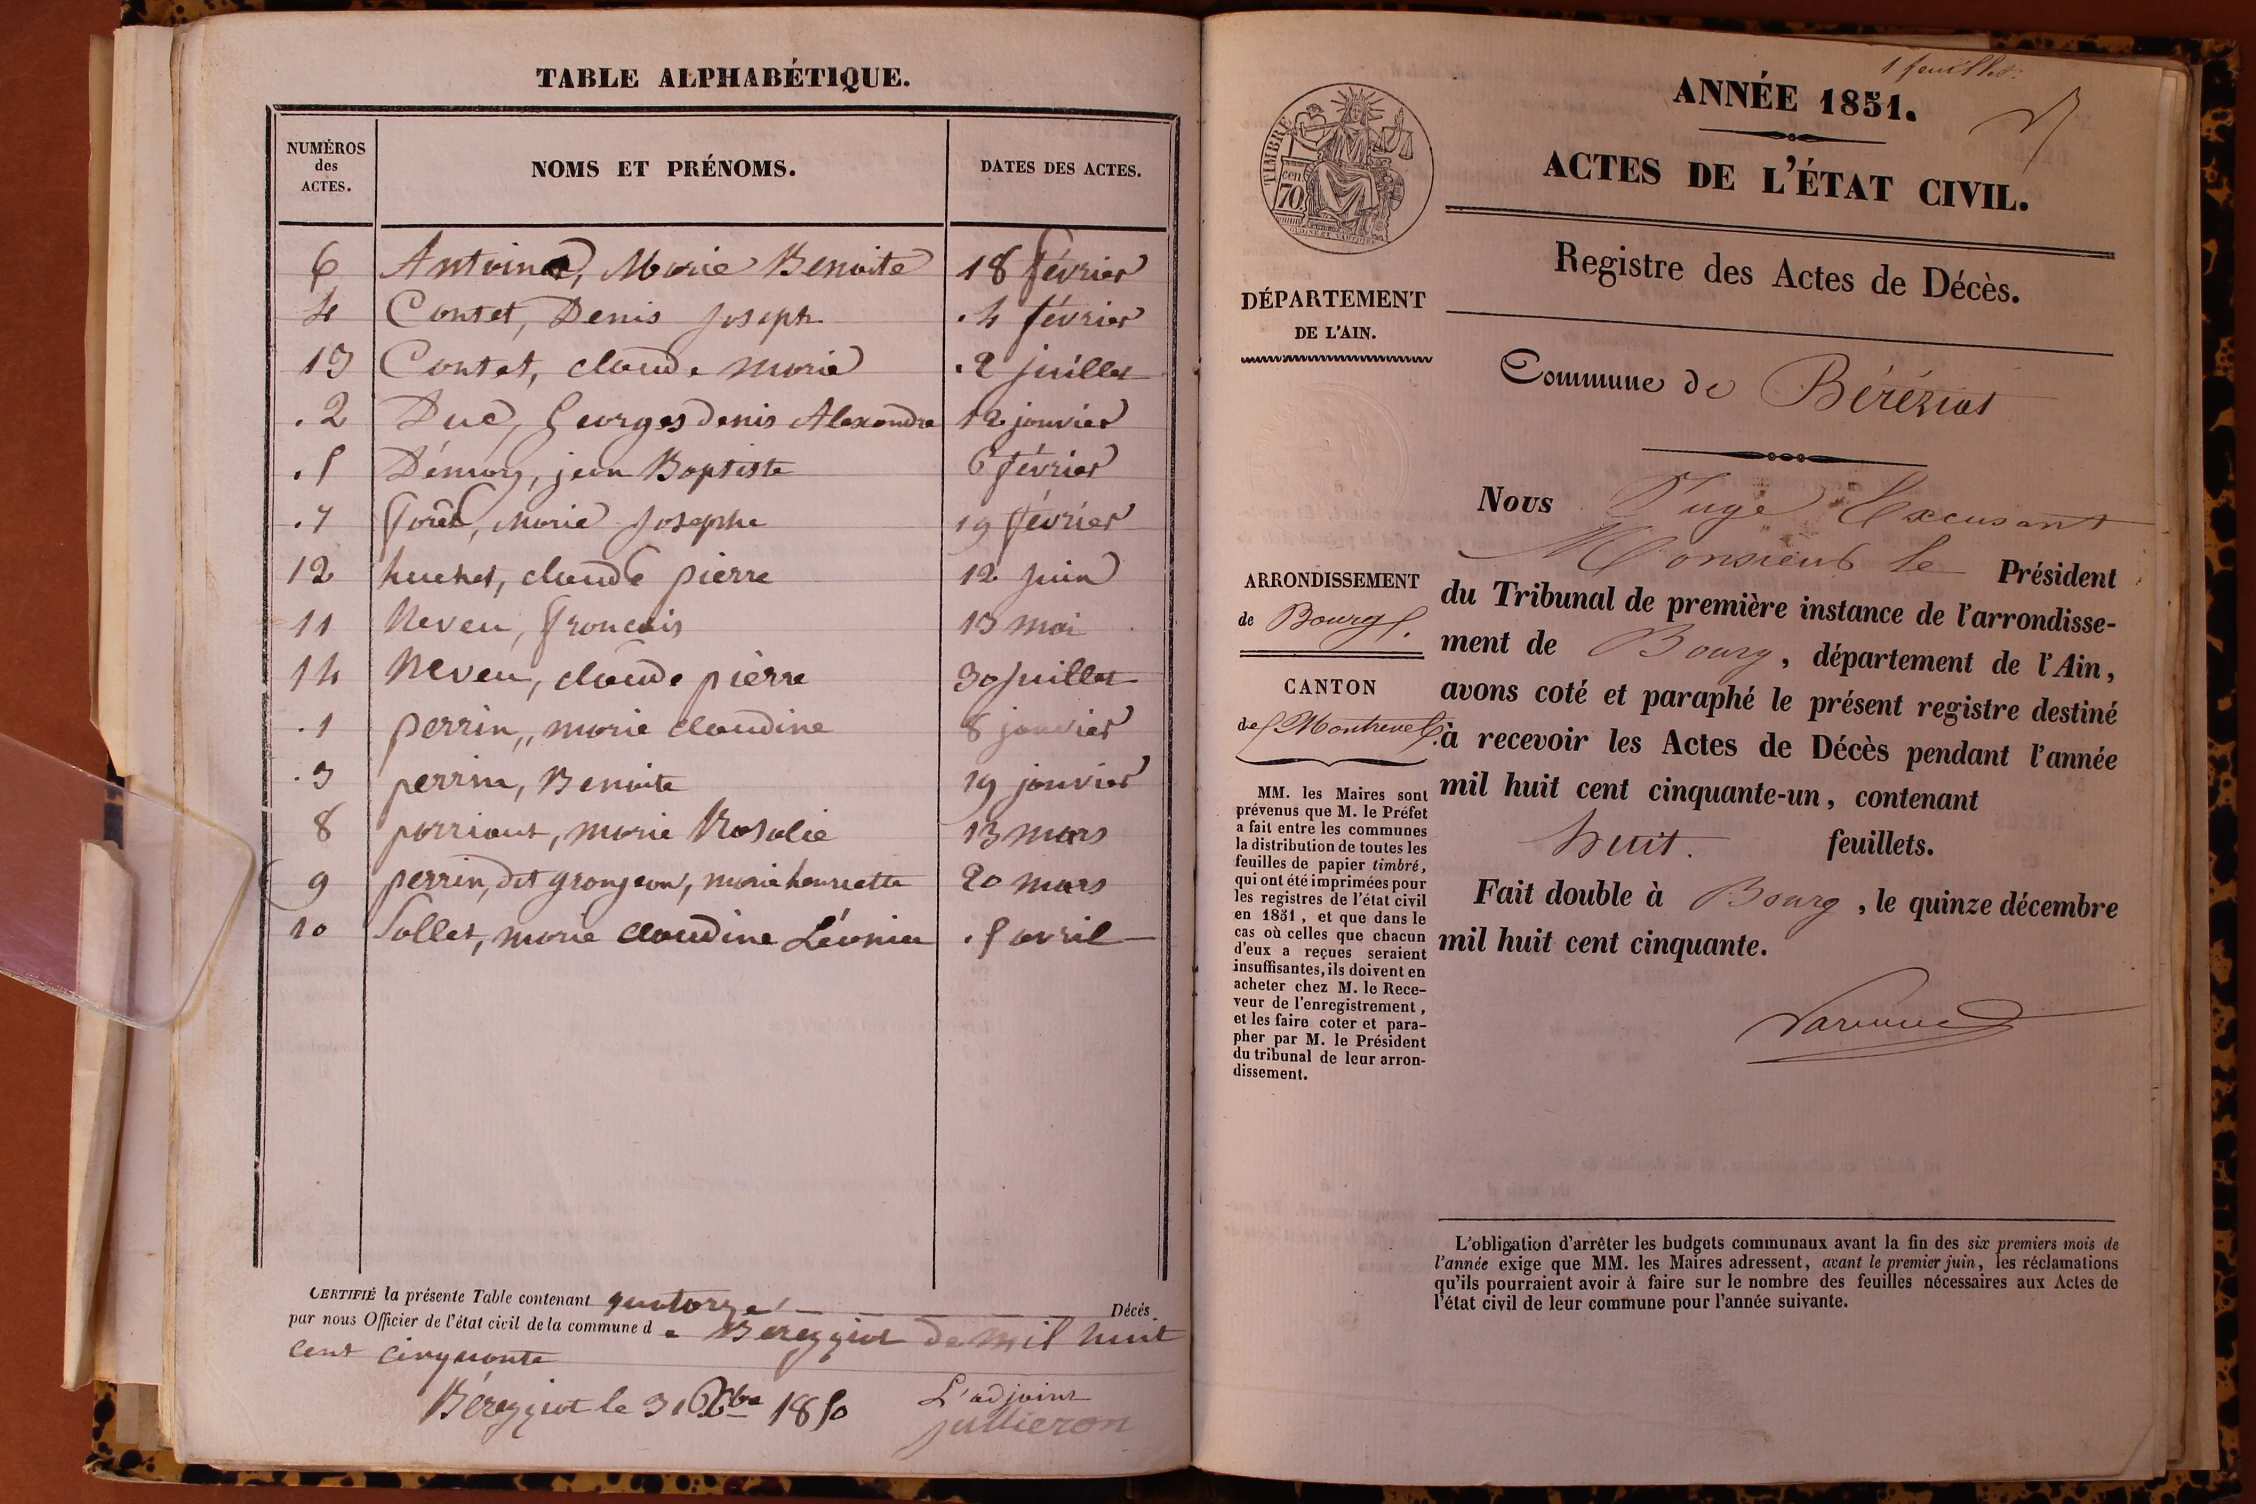 TABLE ALPHABÉTIQUE.
NUMÉROS des ACTES. NOMS ET PRÉNOMS. DATES DES ACTES.
6 Antoine, Marie Benoite 18 février
4 Contet, Denis Joseph .4 février
13 Contet, claude marie .2 juillet
.2 Duc, Georges denis Alexandre 12 janvier
.5 jean Baptiste 6 février
.7 forêt, marie Josephe 19 février
12 huchet, claude pierre 12 juin
11 Neveu, francois 13 mai
14 Neveu, claude pierre 30 juillet
.1 perrin, marie claudine 8 janvier
.3 perrin, Benoite 19 janvier
8 marie Rosalie 13 mars
9 perrin, dit gronjeon, marie henriette 20 mars
10 Sollet, marie claudine Léonie .5 avril
CERTIFIÉ la présente Table contenant quatorze Décès
par nous Officier de l'état civil de la commune de Berezziat de mil huit
cent cinquante
Bérezziat le 31 Xbre 1850 L'adjoint
Jullieron
1 feuillet
ANNÉE 1851.
ACTES DE L'ÉTAT CIVIL.
Registre des Actes de Décès.
TIMBRE
70 cen
DÉPARTEMENT
DE L'AIN.
Commune de Béréziat
ARRONDISSEMENT
de Bourg.
CANTON
de Montrevel.
MM. les Maires sont
prévenus que M. le Préfet
a fait entre les communes
la distribution de toutes les
feuilles de papier timbré,
qui ont été imprimées pour
les registres de l'état civil
en 1851, et que dans le
cas où celles que chacun
d'eux a reçues seraient
insuffisantes, ils doivent en
acheter chez M. le Rece-
veur de l'enregistrement,
et les faire coter et para-
pher par M. le Président
du tribunal de leur arron-
dissement.
Nous Juge Excusant
Monsieur le Président
du Tribunal de première instance de l'arrondisse-
ment de Bourg, département de l'Ain,
avons coté et paraphé le présent registre destiné
à recevoir les Actes de Décès pendant l'année
mil huit cent cinquante-un, contenant
huit. feuillets.
Fait double à Bourg, le quinze décembre
mil huit cent cinquante.
L'obligation d'arrêter les budgets communaux avant la fin des six premiers mois de
l'année exige que MM. les Maires adressent, avant le premier juin, les réclamations
qu'ils pourraient avoir à faire sur le nombre des feuilles nécessaires aux Actes de
l'état civil de leur commune pour l'année suivante.